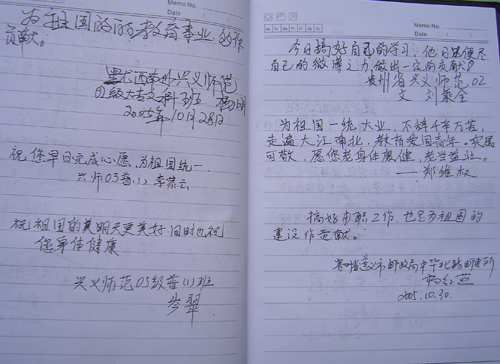 Memo No.
Date
为祖国的教育事业的作
贡献。
黔西南州兴义师范
2005年10月28日
祝您早日完成心愿,为祖国统一
兴师03(1) 李
祝祖国的明天更美好 同时也祝
您幸福健康
兴义师范05级(1)班
岑翠
Memo No.
Date
今日搞好自己的学习,他日用
自己的微薄之力做出一定的贡献
贵州省兴义师范02
文 刘
为祖国一统大业,不辞千辛万苦,
走遍大江南北,教育爱国青年,实属
可敬,愿您老身体康健,老当益壮。
——郑维
搞好本职工作,也是为祖国的
建设作贡献。
贵州省兴义市邮政局中华北路邮政所
2005.10.30